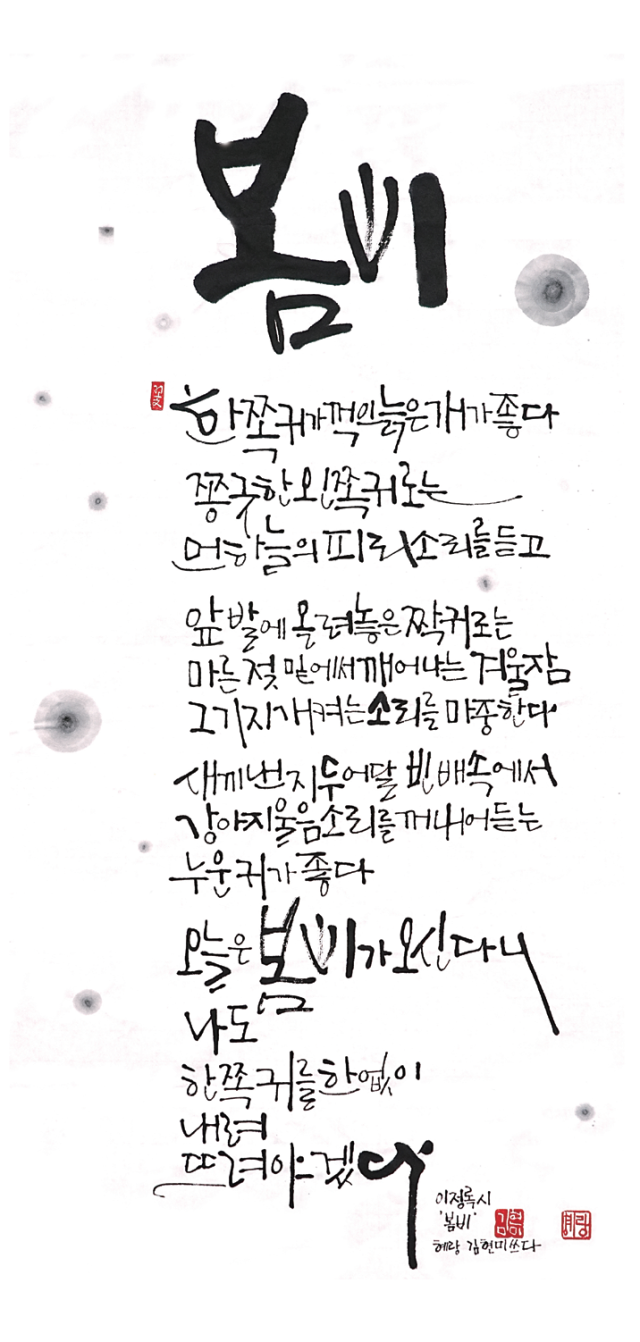 봄비
꽃
한쪽 귀가 꺽인 늙은 개가 좋다
쫑긋한 왼쪽 귀로는
먼 하늘의 피리 소리를 듣고
앞발에 올려놓은 짝귀로는
마른 젖 밑에서 깨어나는 겨울잠
그 기지개 켜는 소리를 마중한다
새끼 낸 지 두어 달 빈 배 속에서
강아지 울음소리를 꺼내어 듣는
누운 귀가 좋다
오늘은 봄비가 오신다니
나도
한쪽 귀를 한없이
내려
뜨려야겠다
이정록 시
'봄비'
혜랑 김현미 쓰다
김현미
혜랑